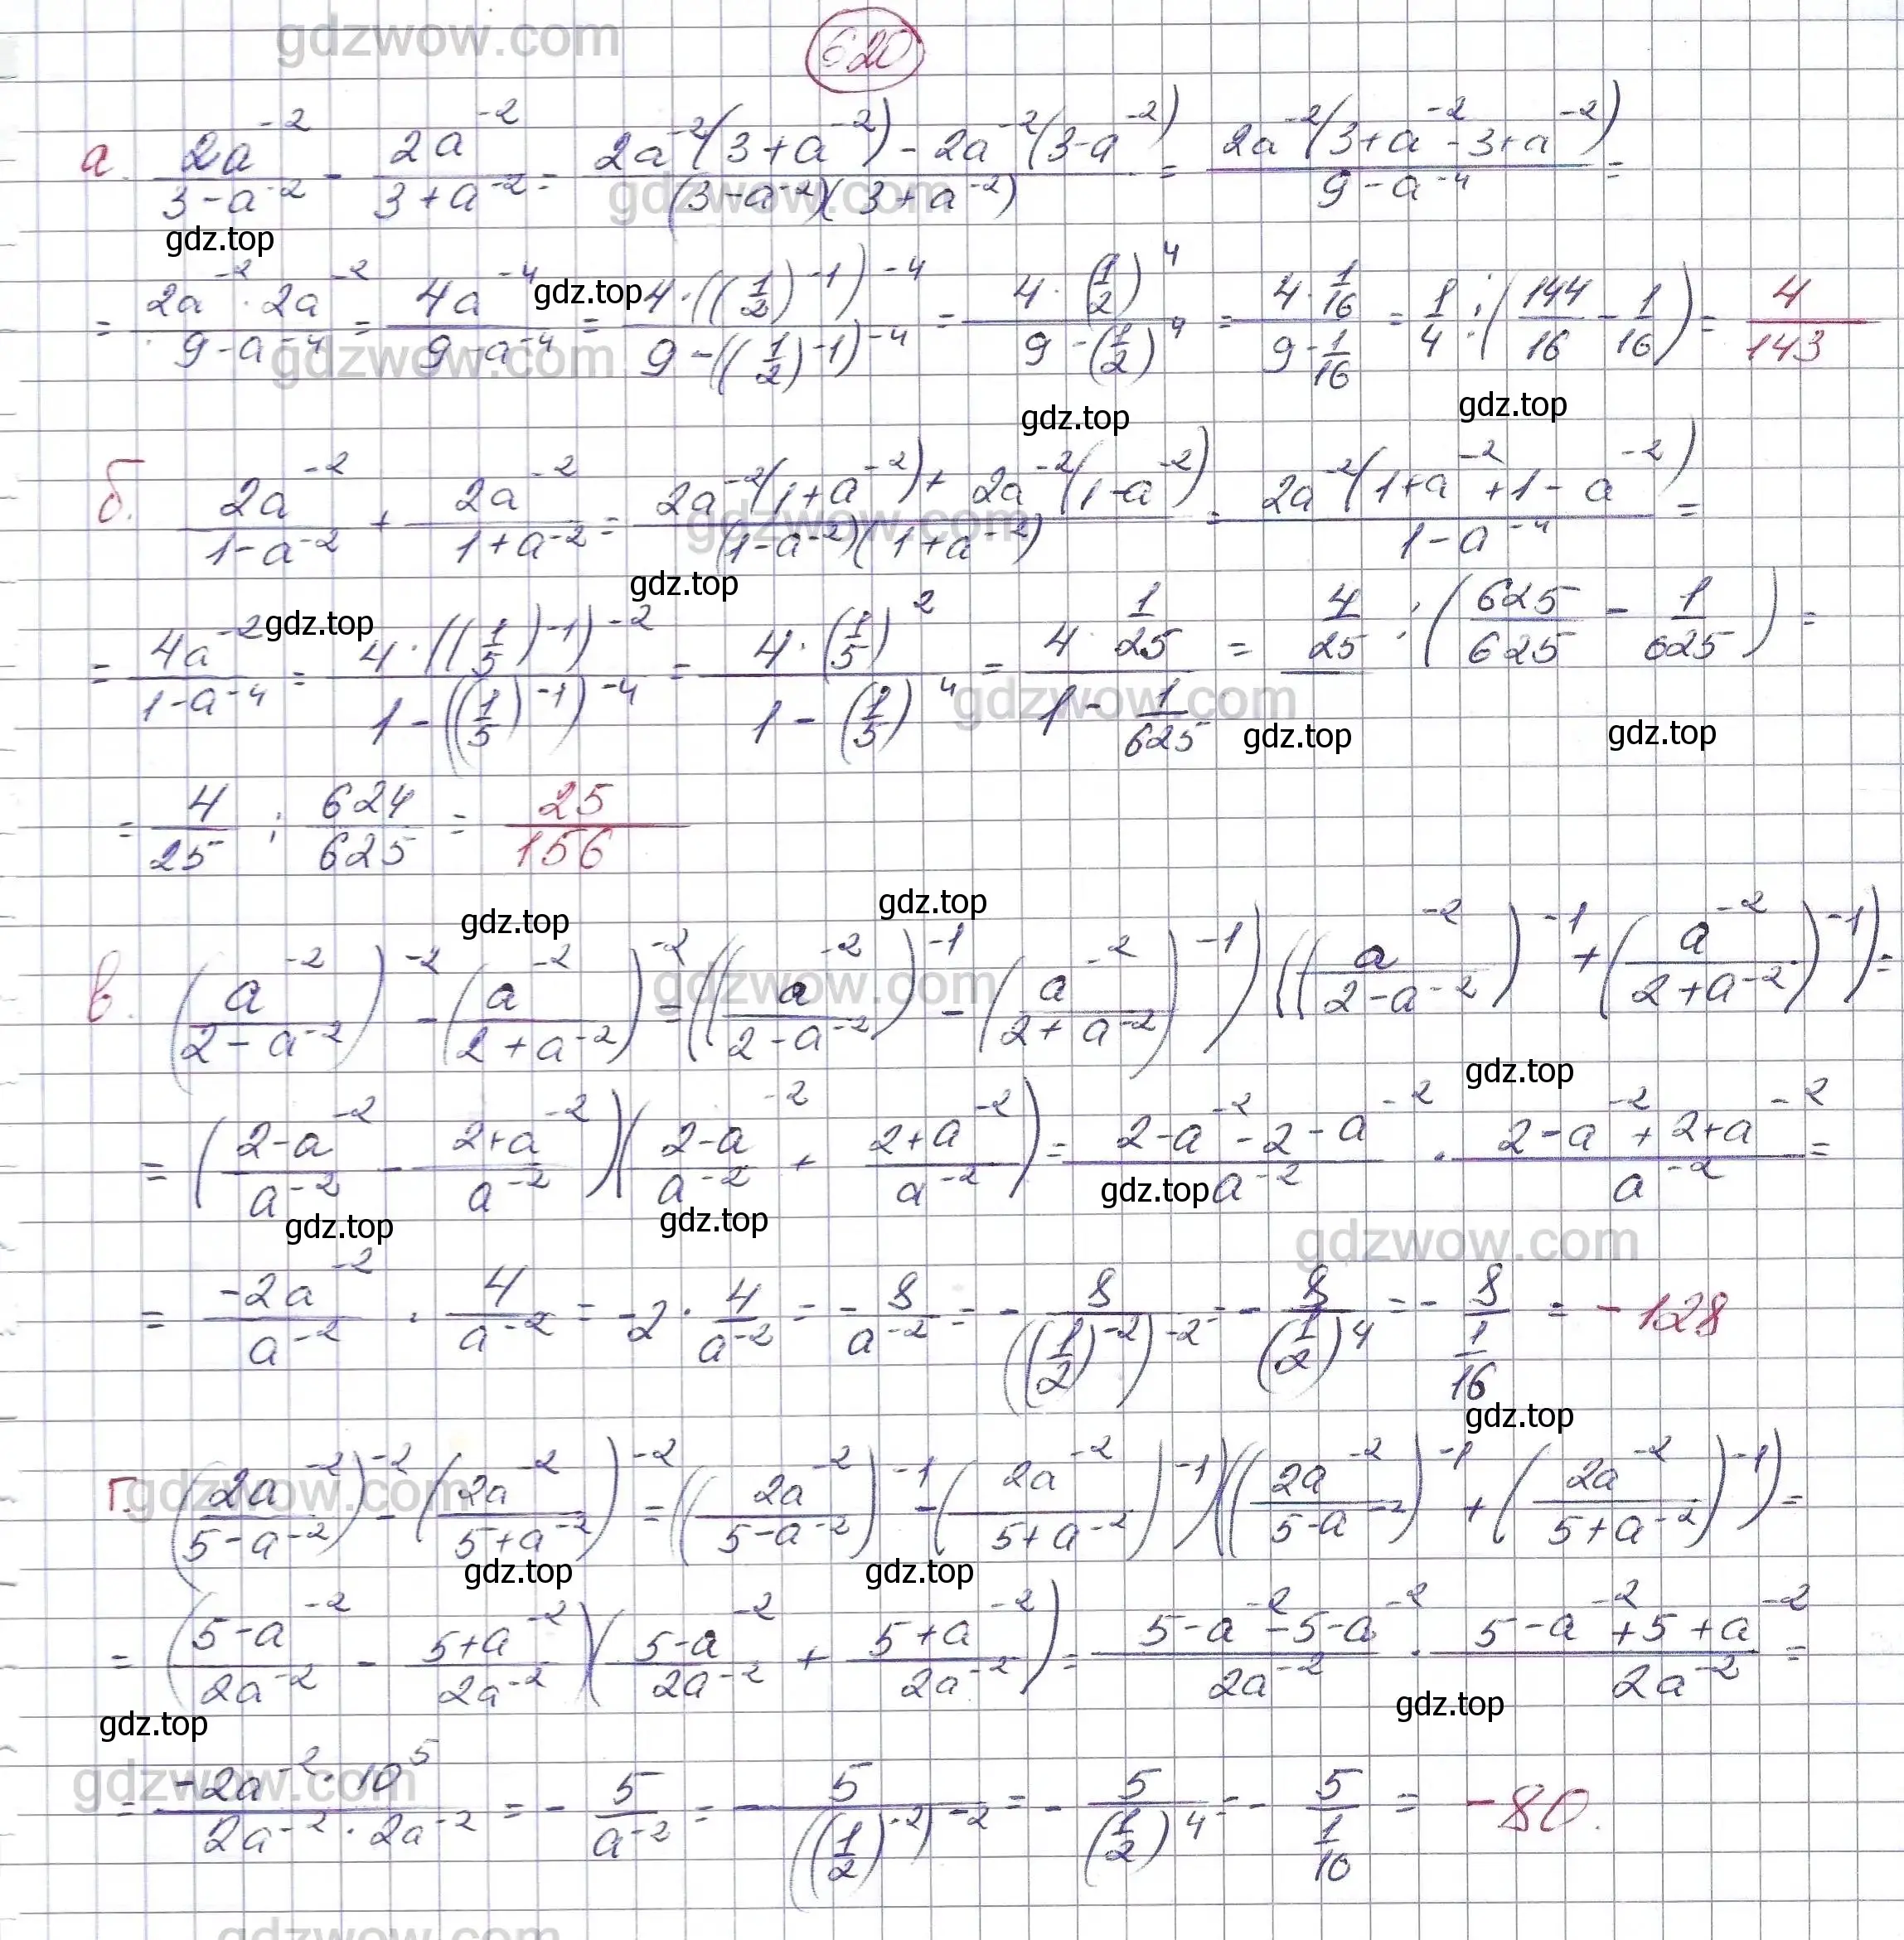 gdzwow.com
620
а. 2a⁻²/(3-a⁻²) - 2a⁻²/(3+a⁻²) = (2a⁻²(3+a⁻²) - 2a⁻²(3-a⁻²))/((3-a⁻²)(3+a⁻²)) = 2a⁻²(3+a⁻²-3+a⁻²)/(9-a⁻⁴) =
gdzwow.com
gdz.top
= (2a⁻²·2a⁻²)/(9-a⁻⁴) = 4a⁻⁴/(9-a⁻⁴) = 4·((1/2)⁻¹)⁻⁴/(9-((1/2)⁻¹)⁻⁴) = 4·(1/2)⁴/(9-(1/2)⁴) = (4·1/16)/(9-1/16) = 1/4 : (144/16 - 1/16) = 4/143
gdz.top
gdzwow.com
gdz.top gdz.top
б. 2a⁻²/(1-a⁻²) + 2a⁻²/(1+a⁻²) = (2a⁻²(1+a⁻²) + 2a⁻²(1-a⁻²))/((1-a⁻²)(1+a⁻²)) = 2a⁻²(1+a⁻²+1-a⁻²)/(1-a⁻⁴) =
gdzwow.com
gdz.top gdz.top
= 4a⁻²/(1-a⁻⁴) = 4·((1/5)⁻¹)⁻²/(1-((1/5)⁻¹)⁻⁴) = 4·(1/5)²/(1-(1/5)⁴) = (4·1/25)/(1-1/625) = 4/25 : (625/625 - 1/625) =
gdzwow.com
gdz.top gdz.top
= 4/25 : 624/625 = 25/156
gdz.top gdz.top
в. (a⁻²/(2-a⁻²))⁻² - (a⁻²/(2+a⁻²))⁻² = ((a⁻²/(2-a⁻²))⁻¹ - (a⁻²/(2+a⁻²))⁻¹)((a⁻²/(2-a⁻²))⁻¹ + (a⁻²/(2+a⁻²))⁻¹) =
gdzwow.com
gdz.top
= ((2-a⁻²)/a⁻² - (2+a⁻²)/a⁻²)((2-a⁻²)/a⁻² + (2+a⁻²)/a⁻²) = (2-a⁻²-2-a⁻²)/a⁻² · (2-a⁻²+2+a⁻²)/a⁻² =
gdz.top gdz.top gdz.top
gdzwow.com
= -2a⁻²/a⁻² · 4/a⁻² = -2·4/a⁻² = -8/a⁻² = -8/((1/2)⁻²)⁻² = -8/(1/2)⁴ = -8/(1/16) = -128
gdz.top
г. (2a⁻²/(5-a⁻²))⁻² - (2a⁻²/(5+a⁻²))⁻² = ((2a⁻²/(5-a⁻²))⁻¹ - (2a⁻²/(5+a⁻²))⁻¹)((2a⁻²/(5-a⁻²))⁻¹ + (2a⁻²/(5+a⁻²))⁻¹) =
gdzwow.com
gdz.top gdz.top
= ((5-a⁻²)/2a⁻² - (5+a⁻²)/2a⁻²)((5-a⁻²)/2a⁻² + (5+a⁻²)/2a⁻²) = (5-a⁻²-5-a⁻²)/2a⁻² · (5-a⁻²+5+a⁻²)/2a⁻² =
gdz.top gdz.top
gdzwow.com
= (-2a⁻²·10⁵)/(2a⁻²·2a⁻²) = -5/a⁻² = -5/((1/2)⁻²)⁻² = -5/(1/2)⁴ = -5/(1/16) = -80.
gdzwow.com